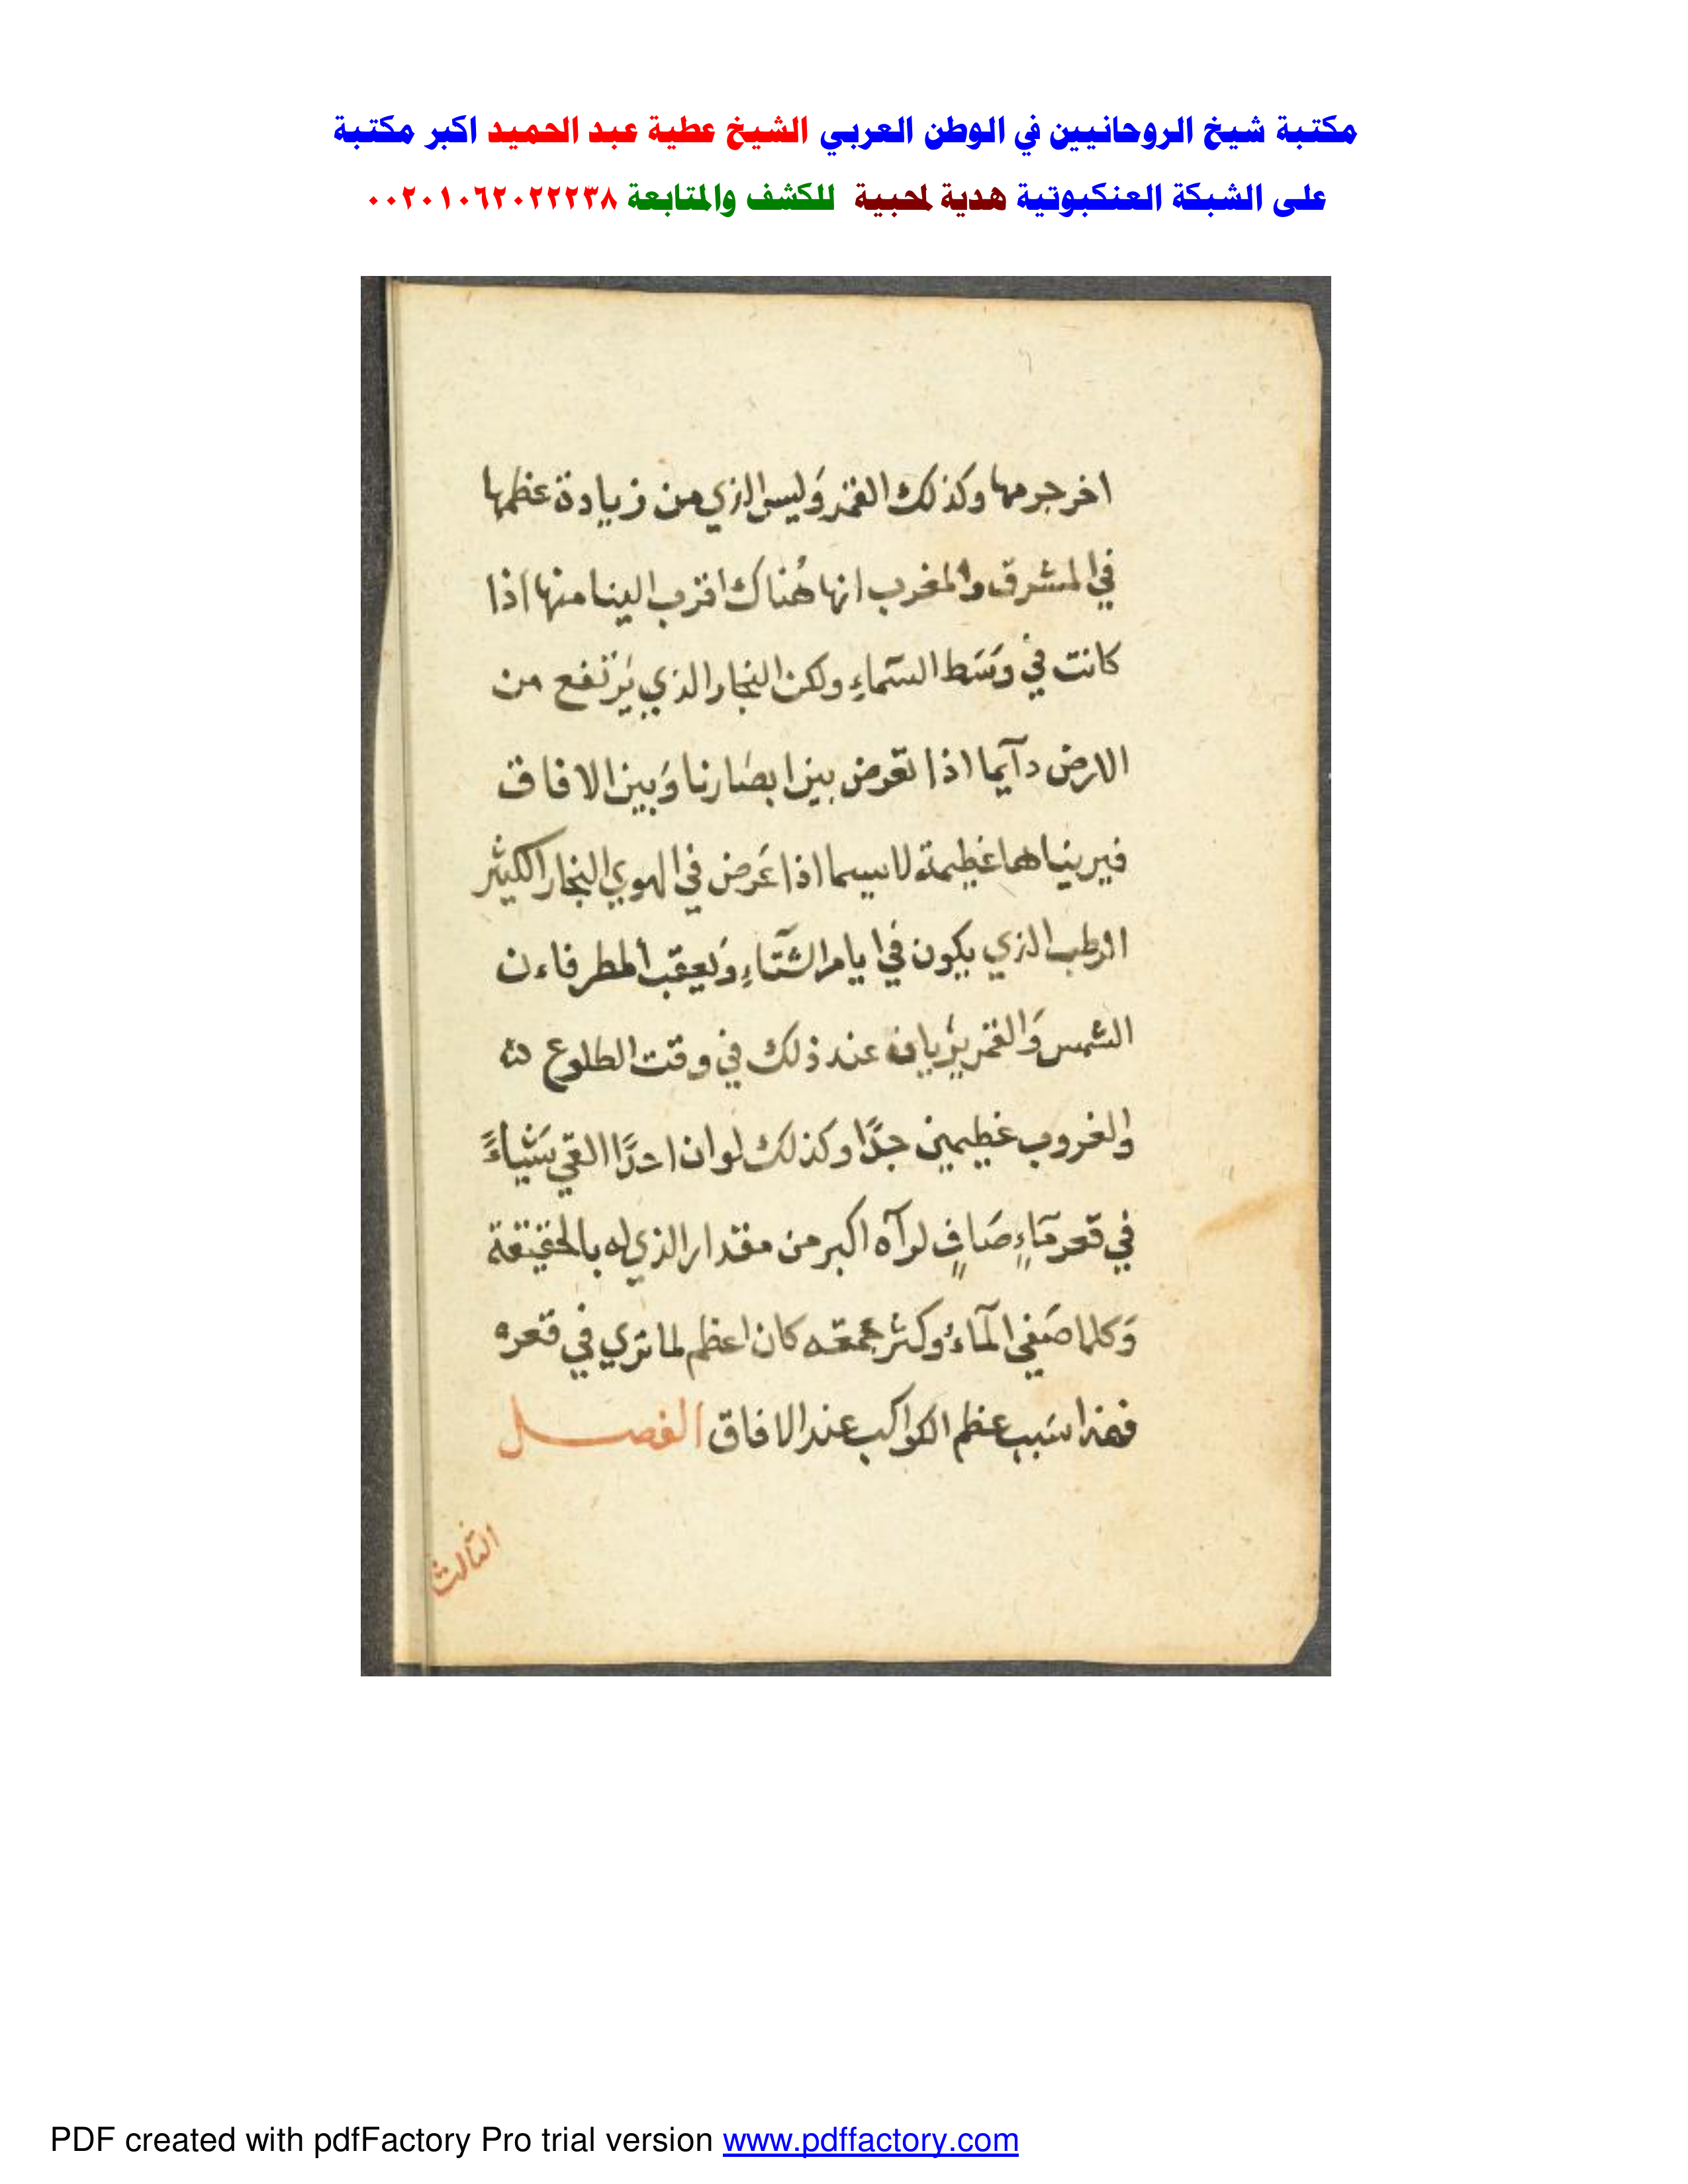 مكتبة شيخ الروحانيين في الوطن العربي الشيخ عطية عبد الحميد اكبر مكتبة
على الشبكة العنكبوتية هدية لمحبية للكشف والمتابعة ٠٠٢٠١٠٦٢٠٢٢٢٣٨
اخر جرمها وكذلك القمر وَليس الذي من زيادة عظمها
في المشرق والمغرب انها هُناك اقرب الينا منها اذا
كانت في وَسَط السَّماءِ ولكن البخار الذي يَرْتفع من
الارض دآيما اذا تعرض بين ابصَارنا وَبين الافاق
فيريناها عظيمة لاسيما اذا عَرض في الهوي البخار الكثير
الرطب الذي يكون في ايام الشتآءِ وَيعقب المطر فاءن
الشمس وَالقمر يرْيان عند ذلك في وقت الطلوع
والغروب عظيمين جدًّا وكذلك لو ان احدًا القي شَيْاءً
في قعر مَاءٍ صَافٍ لرآه اكبر من مقدار الذي له بالحقيقة
وَكلما صَفي المآءُ وكثر عمقه كان اعظم لما تري في قعره
فهذا سَبب عظم الكواكب عند الافاق الفصل
الثالث
PDF created with pdfFactory Pro trial version www.pdffactory.com